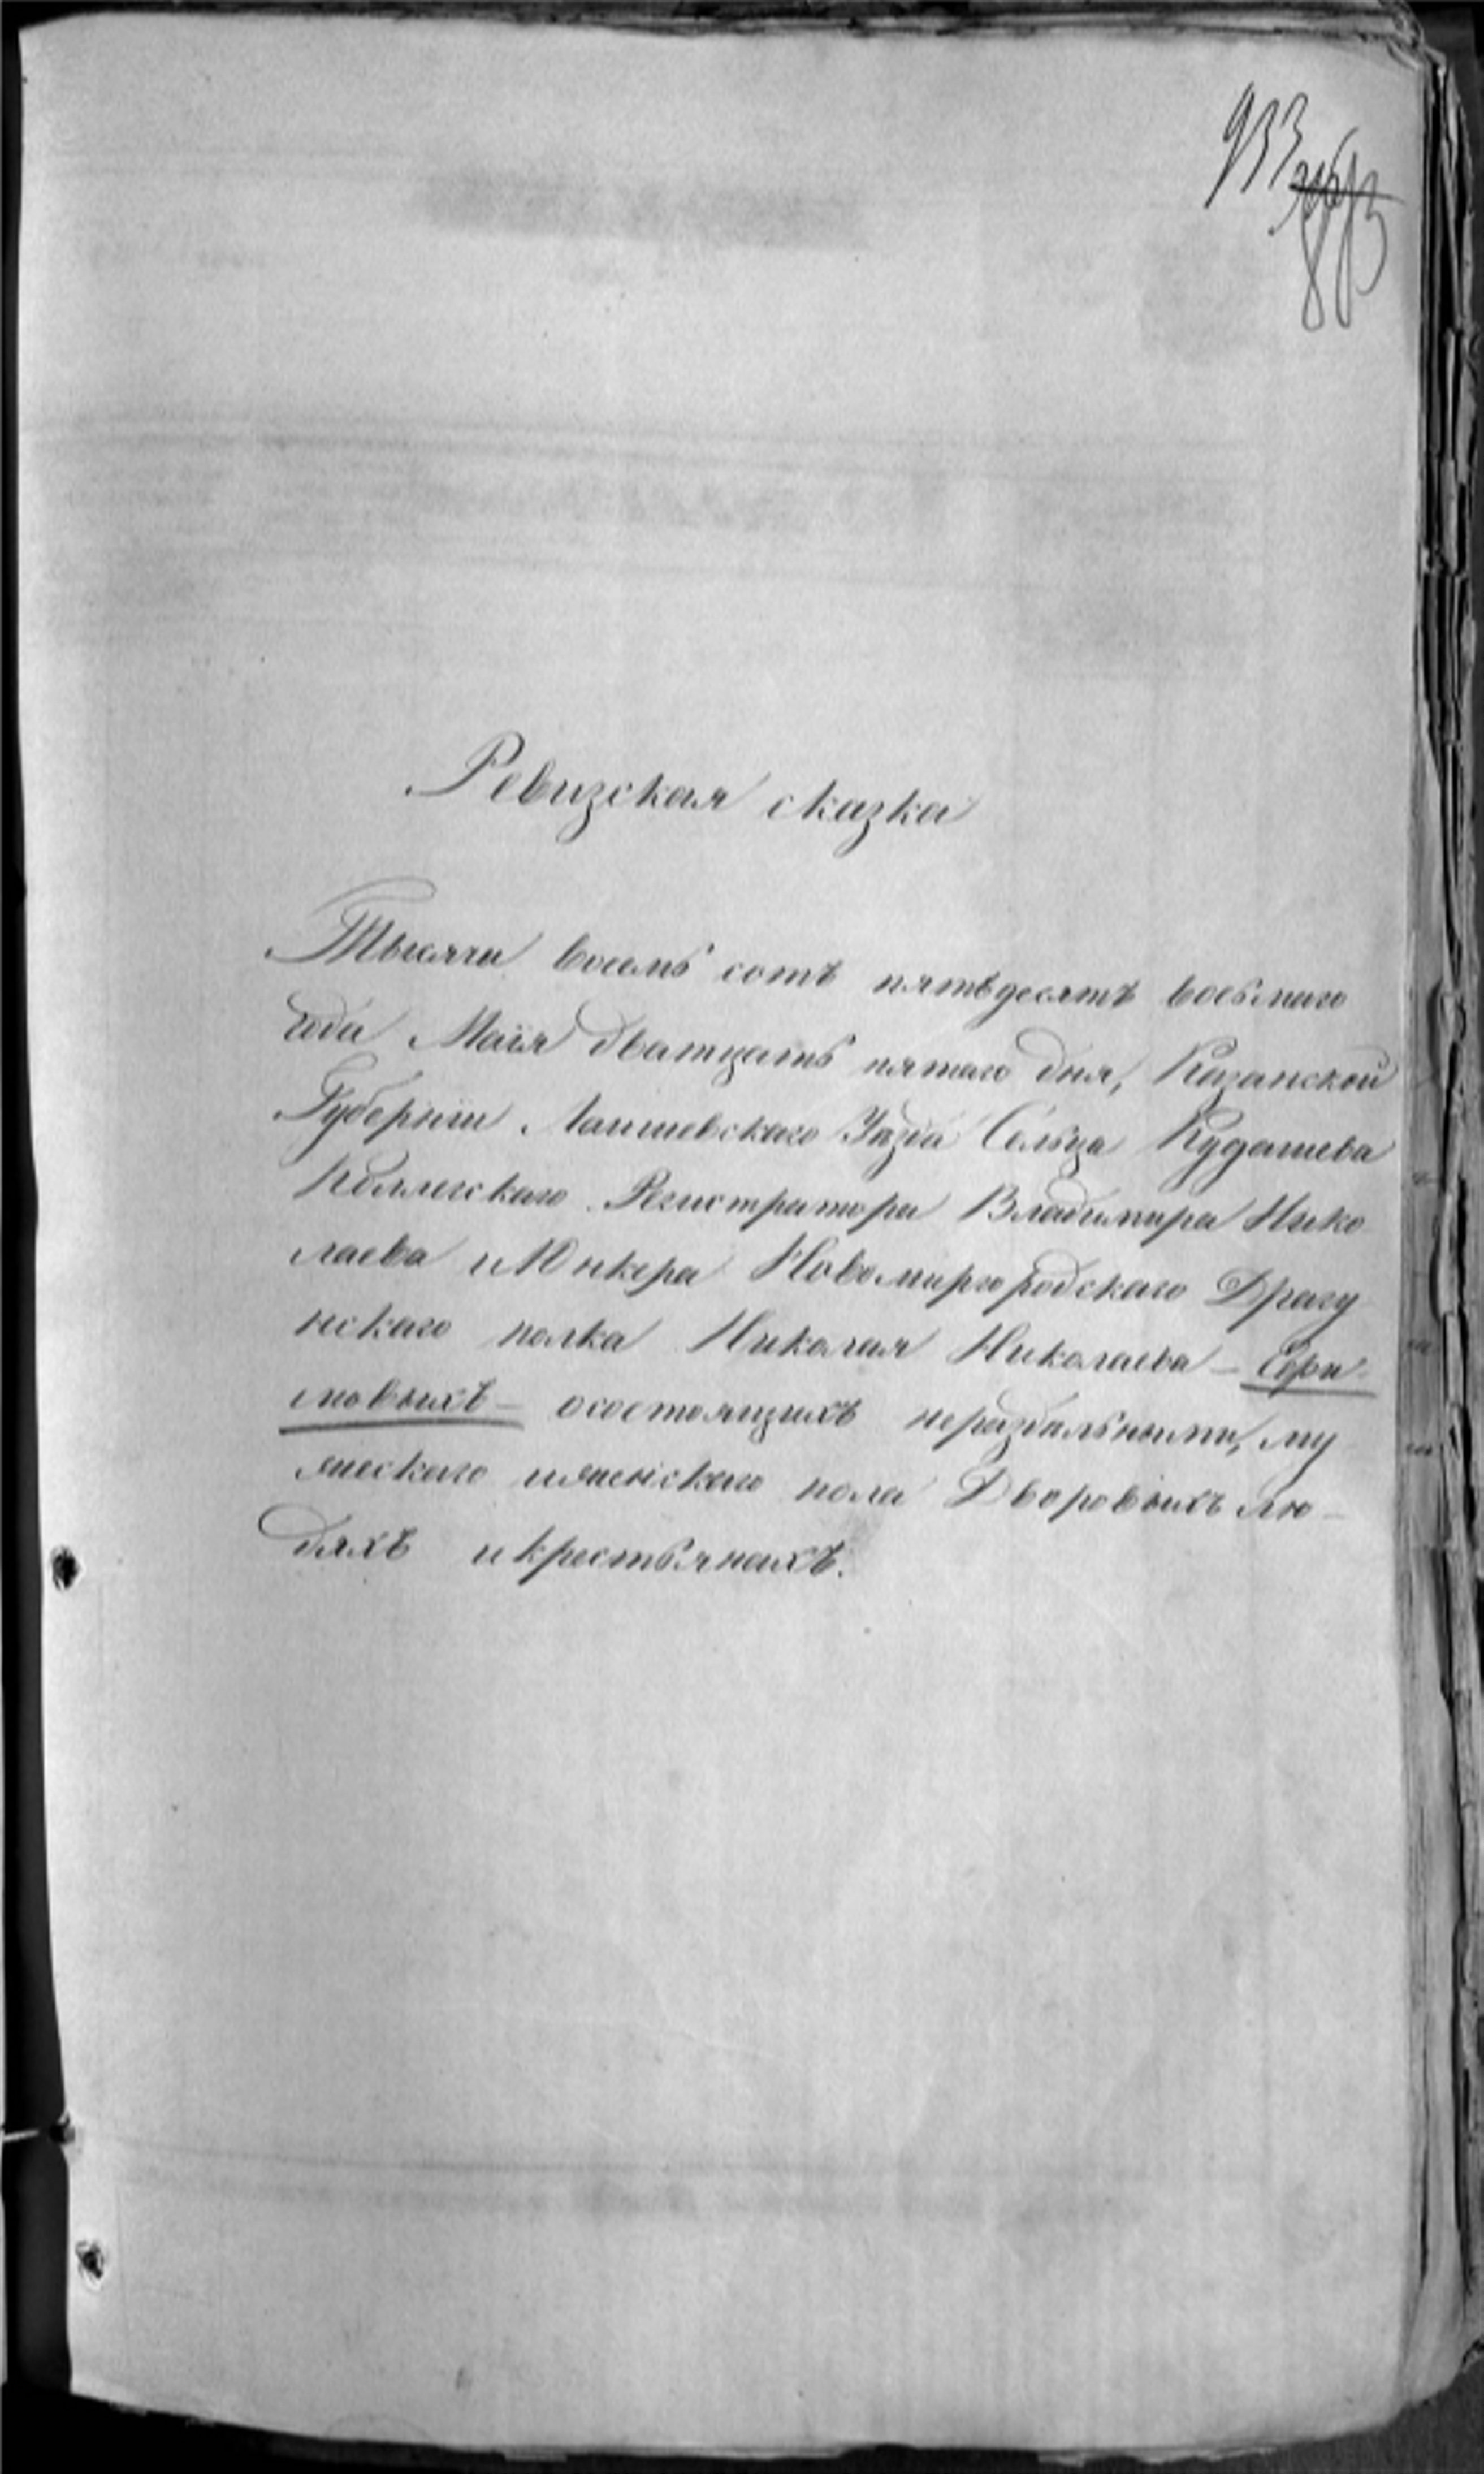 933
Ревизская сказка
Тысяча восемь сотъ пятьдесятъ восьмаго
года Маія дватцать пятаго дня, Казанской
Губерніи Лаишевскаго Уѣзда Сельца Кудашева
Коллегскаго Регистратора Владимира Нико
лаева и Юнкера Новомиргородскаго Драгу
нскаго полка Николая Николаева –
осостоящихъ нераздѣльными, му
жескаго иженскаго пола Дворовыхъ лю-
дяхъ и крестьянахъ.